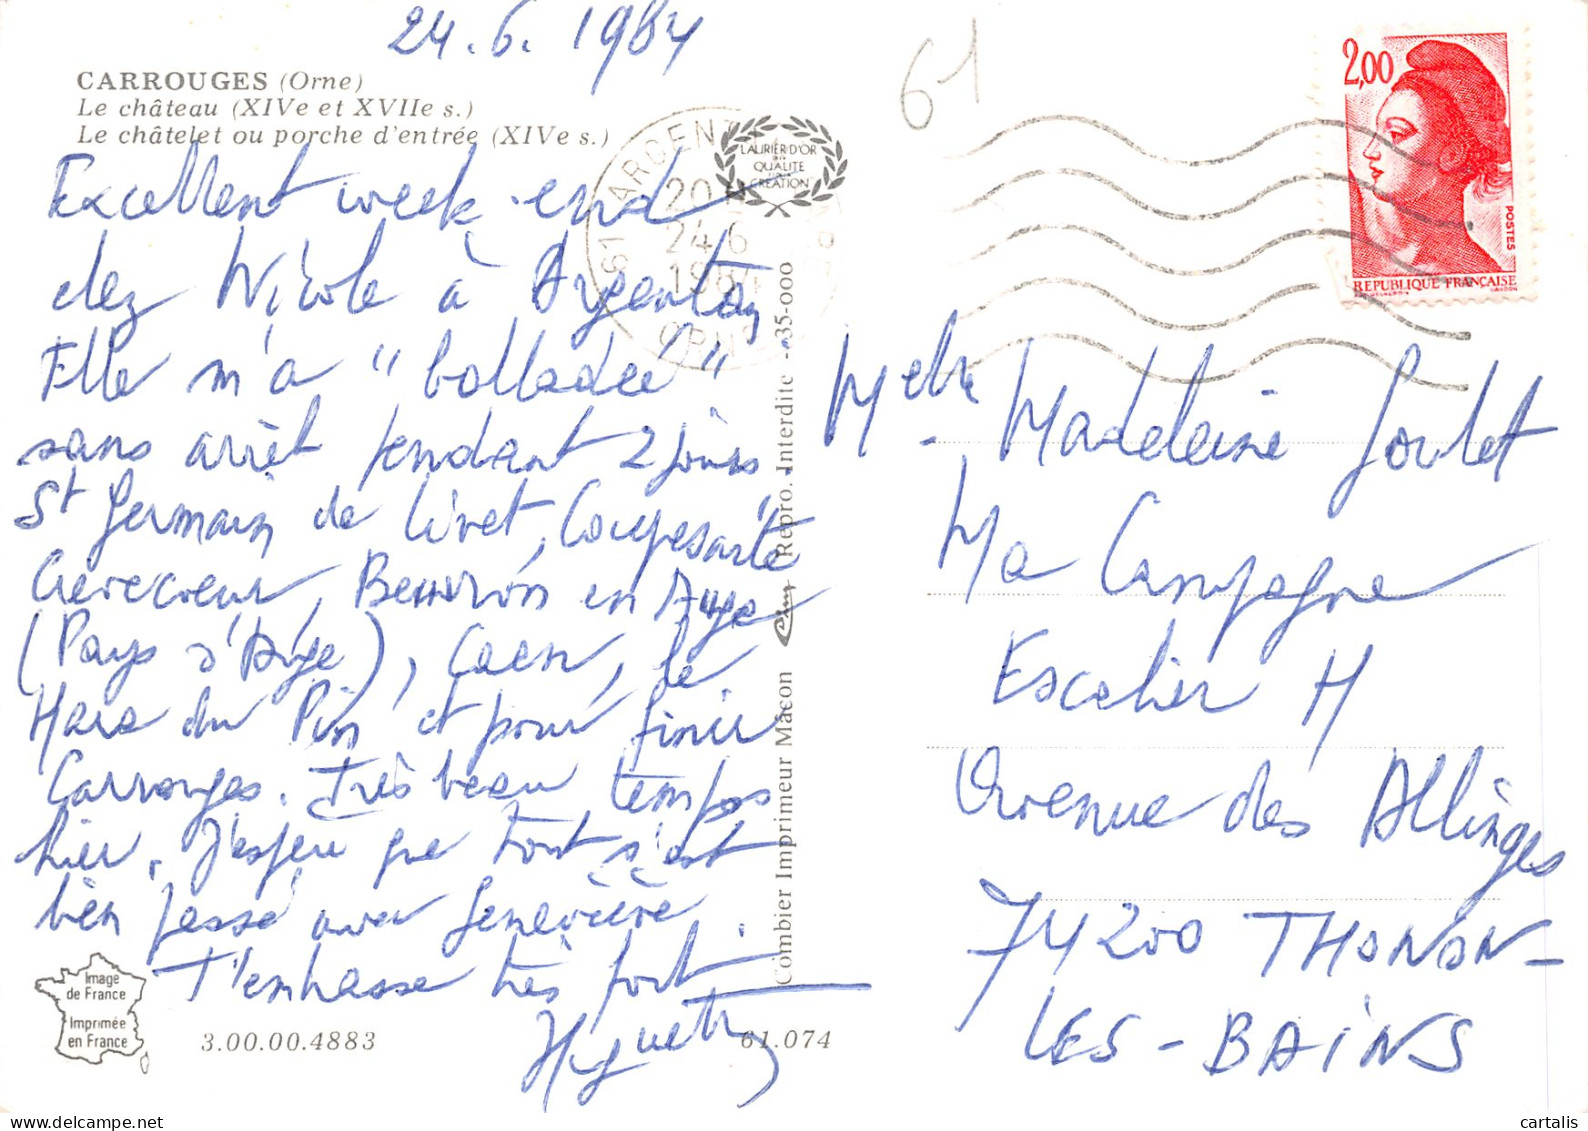 24.6.1984
CARROUGES (Orne)
Le château (XIVe et XVIIe s.)
Le châtelet ou porche d'entrée (XIVe s.)
Excellent week-end
chez Nicole à Argentan
Elle m'a "balladée"
sans arrêt pendant 2 jours.
St Germain de Livet, Coupesarte
Crèvecoeur, Beuvron en Auge
(Pays d'Auge), Caen, le
Haras du Pin et pour finir
Carrouges. Très beau temps
hier. J'espère que tout s'est
bien passé avec Geneviève.
T'embrasse très fort.
Huguette
Image
de France
Imprimée
en France
3.00.00.4883
61.074
LAURIER D'OR
QUALITE
CREATION
61 ARGENTAN
20H
24-6
1984
ORNE
Combier Imprimeur Mâcon
Repro. Interdite - 35-000
61
2,00
POSTES
REPUBLIQUE FRANÇAISE
GANDON
Melle Madeleine Goulet
Ma Campagne
Escalier H
Avenue des Allinges
74200 THONON-
LES-BAINS
cartalis